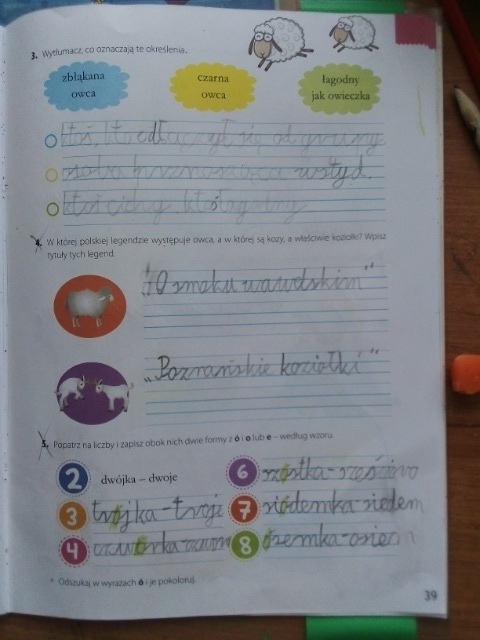 3. Wytłumacz, co oznaczają te określenia.
zbłąkana owca
czarna owca
łagodny jak owieczka
ktoś, kto odłączył się od grupy
osoba przynosząca wstyd.
ktoś cichy, ktoś łagodny
4. W której polskiej legendzie występuje owca, a w której są kozy, a właściwie koziołki? Wpisz
tytuły tych legend.
"O smoku wawelskim"
„Poznańskie koziołki"
5. Popatrz na liczby i zapisz obok nich dwie formy z ó i o lub e – według wzoru.
2 dwójka – dwoje
6 szóstka-sześcioro
3 trójka-troje
7 siódemka-siedem
4 czwórka-
8 ósemka-osiem
* Odszukaj w wyrazach ó i je pokoloruj.
39